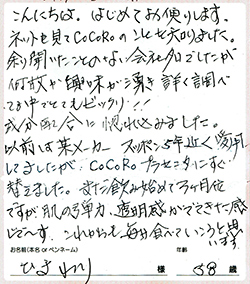 こんにちは。はじめてお便りします。
ネットを見てCoCoRoのことを知りました。
余り聞いたことのない会社名でしたが
何故か興味が湧き詳く調べ
てる中でとてもビックリ!!
成分配合に惚れ込みました。
以前は某メーカースッポン5年近く愛用
してましたが、CoCoRoプラセンタにすぐ
替えました。まだ飲み始めて3ヶ月位
ですが肌の弾力、透明感がでてきた感
じです。これからも毎日食べていこうと思
います。
お名前(本名 or ペンネーム) 年齢
様 58歳